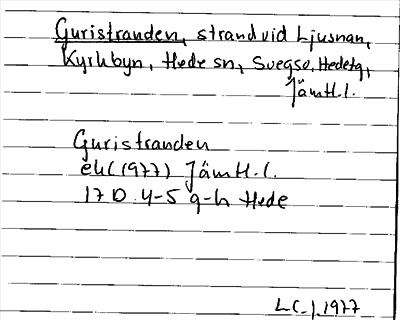 Guristranden, strand vid Ljusnan,
Kyrkbyn, Hede sn, Svegso, Hedetg,
Jämtl.l.
Guristranden
ek(1977) Jämtl.l.
17 D 4-5 g-h Hede
1977